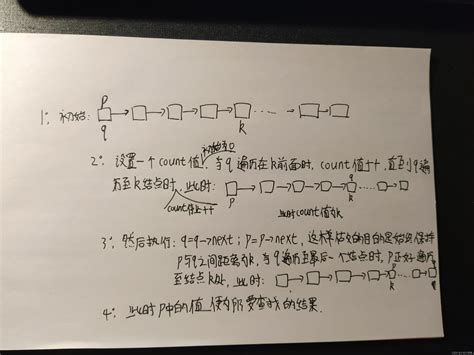 p
1°: 初始: □→□→□→□→□→ ... →□→□
q k
初始为0
2°: 设置一个count值, 当q遍历在k前面时, count值++, 直到q遍
历至k结点时, 此时:
q
p k
count停止++ 此时count值为k
3°: 然后执行: q=q→next; p=p→next, 这样做的目的是始终保持
p与q之间距离为k, 当q遍历至最后一个结点时, p正好遍历
至结点k处, 此时:
p q
k
4°: 此时p中的值便为所要查找的结果.